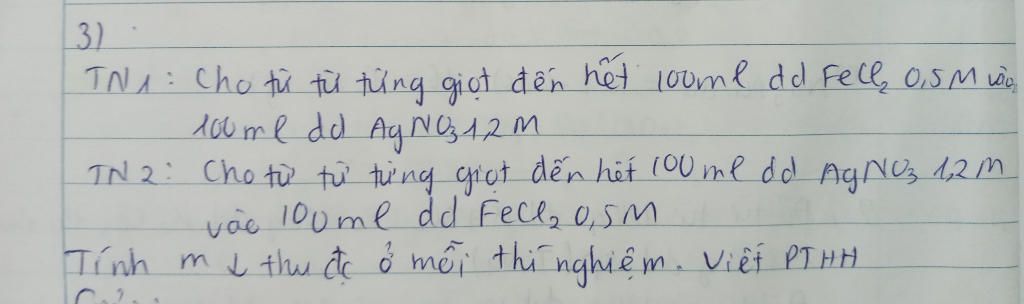 3)
TN1: Cho từ từ từng giọt đến hết 100ml dd FeCl₂ 0,5M vào
100ml dd AgNO₃ 1,2M
TN2: Cho từ từ từng giọt đến hết 100ml dd AgNO₃ 1,2M
vào 100ml dd FeCl₂ 0,5M
Tính m ↓ thu đc ở mỗi thí nghiệm. Viết PTHH